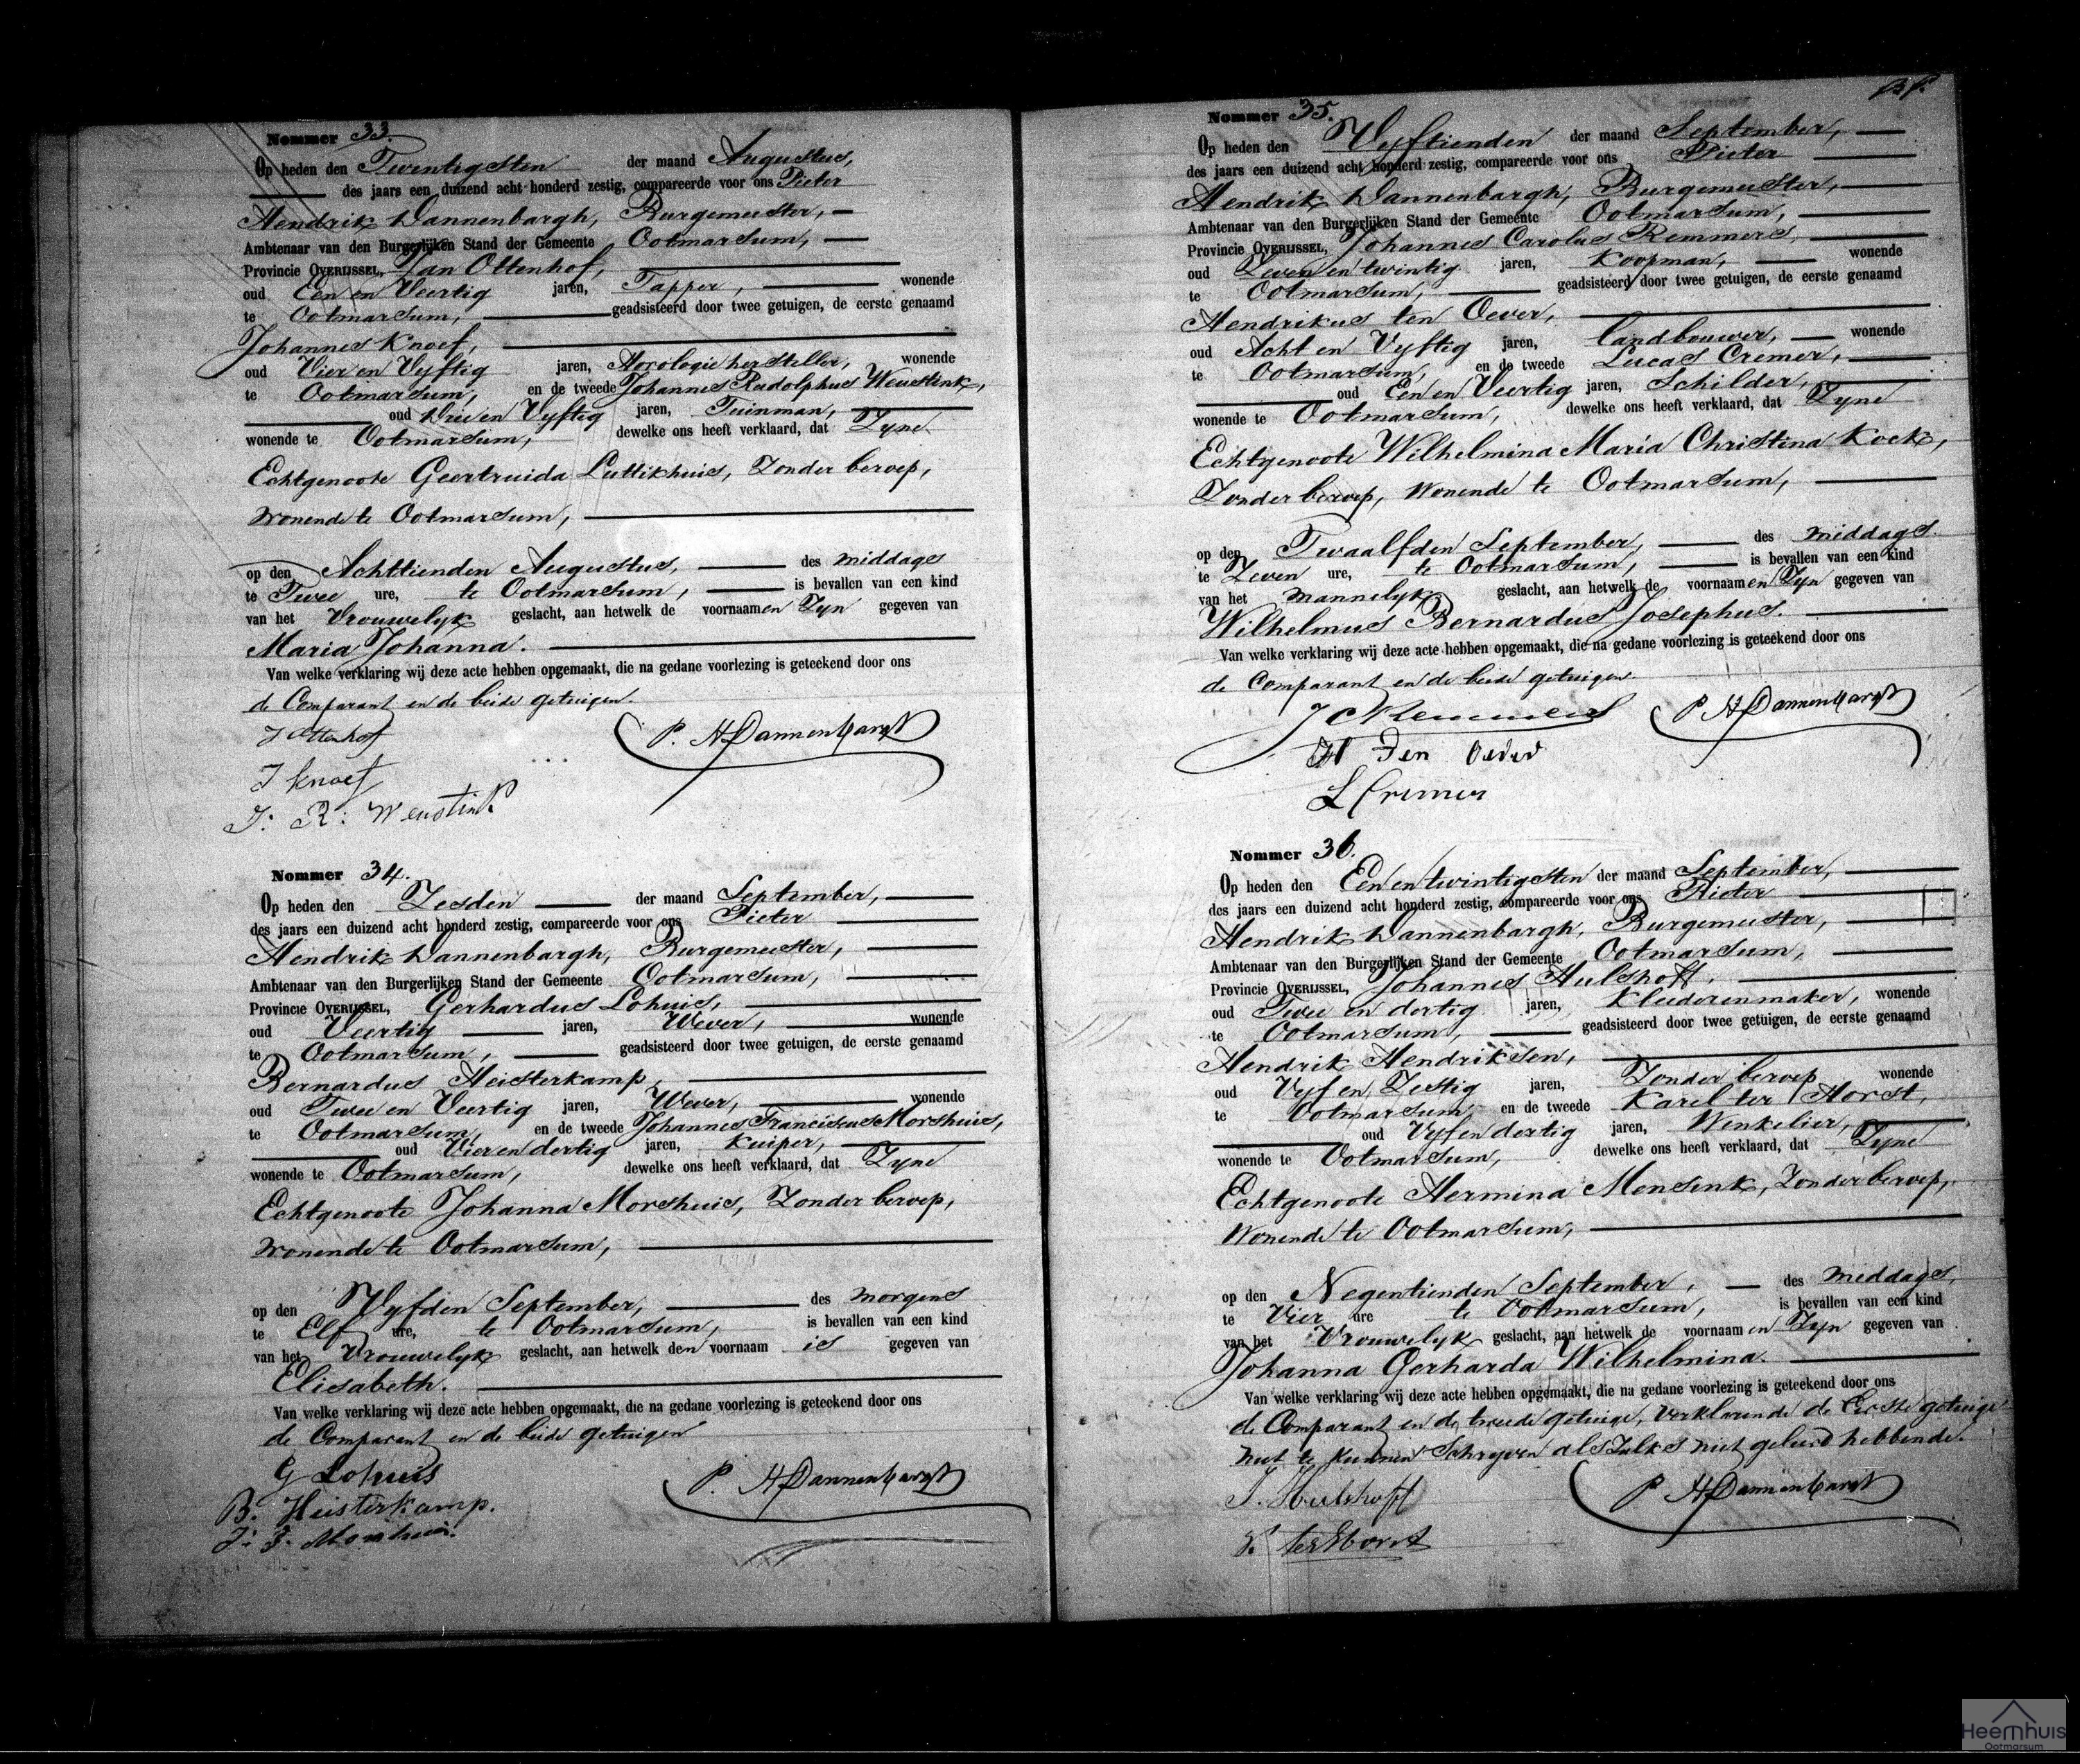 Nommer 33.
Op heden den Twintigsten der maand Augustus,
des jaars een duizend acht honderd zestig, compareerde voor ons Pieter
Hendrik Dannenbargh, Burgemeester,
Ambtenaar van den Burgerlijken Stand der Gemeente Ootmarsum,
Provincie OVERIJSSEL, Jan Ottenhof,
oud Een en Veertig jaren, Tapper, wonende
te Ootmarsum, geadsisteerd door twee getuigen, de eerste genaamd
Johannes Knoef,
oud Vier en Vyftig jaren, Horologie hersteller, wonende
te Ootmarsum, en de tweede Johannes Rudolphus Weustink,
oud Drie en Vyftig jaren, Tuinman,
wonende te Ootmarsum, dewelke ons heeft verklaard, dat Zyne
Echtgenoote Geertruida Luttikhuis, Zonder beroep,
Wonende te Ootmarsum,
op den Achttienden Augustus, des middags
te Twee ure, te Ootmarsum, is bevallen van een kind
van het Vrouwelyk geslacht, aan hetwelk de voornaamen Zyn gegeven van
Maria Johanna.
Van welke verklaring wij deze acte hebben opgemaakt, die na gedane voorlezing is geteekend door ons
de Comparant en de beide getuigen.
J Ottenhof
P. H Dannenbargh
J Knoef
J: R: Weustink
Nommer 34.
Op heden den Zesden der maand September,
des jaars een duizend acht honderd zestig, compareerde voor ons Pieter
Hendrik Dannenbargh, Burgemeester,
Ambtenaar van den Burgerlijken Stand der Gemeente Ootmarsum,
Provincie OVERIJSSEL, Gerhardus Lohuis,
oud Veertig jaren, Wever, wonende
te Ootmarsum, geadsisteerd door twee getuigen, de eerste genaamd
Bernardus Heisterkamp,
oud Twee en Veertig jaren, Wever, wonende
te Ootmarsum, en de tweede Johannes Franciscus Morshuis,
oud Vier en dertig jaren, Kuiper,
wonende te Ootmarsum, dewelke ons heeft verklaard, dat Zyne
Echtgenoote Johanna Morshuis, Zonder beroep,
Wonende te Ootmarsum,
op den Vyfden September, des morgens
te Elf ure, te Ootmarsum, is bevallen van een kind
van het Vrouwelyk geslacht, aan hetwelk den voornaam is gegeven van
Elisabeth.
Van welke verklaring wij deze acte hebben opgemaakt, die na gedane voorlezing is geteekend door ons
de Comparant en de beide getuigen
G Lohuis
P. H Dannenbargh
B. Heisterkamp.
J: F. Morshuis.
Nommer 35.
Op heden den Vyftienden der maand September,
des jaars een duizend acht honderd zestig, compareerde voor ons Pieter
Hendrik Dannenbargh, Burgemeester,
Ambtenaar van den Burgerlijken Stand der Gemeente Ootmarsum,
Provincie OVERIJSSEL, Johannes Carolus Remmers,
oud Zeven en twintig jaren, Koopman, wonende
te Ootmarsum, geadsisteerd door twee getuigen, de eerste genaamd
Hendrikus ten Oever,
oud Acht en Vyftig jaren, landbouwer, wonende
te Ootmarsum, en de tweede Lucas Cremer,
oud Een en Veertig jaren, Schilder,
wonende te Ootmarsum, dewelke ons heeft verklaard, dat Zyne
Echtgenoote Wilhelmina Maria Christina Kock,
Zonder beroep, Wonende te Ootmarsum,
op den Twaalfden September, des middags.
te Zeven ure, te Ootmarsum, is bevallen van een kind
van het mannelyk geslacht, aan hetwelk de voornaamen Zyn gegeven van
Wilhelmus Bernardus Josephus.
Van welke verklaring wij deze acte hebben opgemaakt, die na gedane voorlezing is geteekend door ons
de Comparant en de beide getuigen.
J C Remmers
P H Dannenbargh
H Ten Oever
L Cremer
Nommer 36.
Op heden den Een en twintigsten der maand September,
des jaars een duizend acht honderd zestig, compareerde voor ons Pieter
Hendrik Dannenbargh, Burgemeester,
Ambtenaar van den Burgerlijken Stand der Gemeente Ootmarsum,
Provincie OVERIJSSEL, Johannes Hulshoff,
oud Twee en dertig jaren, Kleederenmaker, wonende
te Ootmarsum, geadsisteerd door twee getuigen, de eerste genaamd
Hendrik Hendriksen,
oud Vyf en Zestig jaren, Zonder beroep wonende
te Ootmarsum, en de tweede Karel ter Horst,
oud Vyf en dertig jaren, Winkelier,
wonende te Ootmarsum, dewelke ons heeft verklaard, dat Zyne
Echtgenoote Hermina Mensink, Zonder beroep,
Wonende te Ootmarsum,
op den Negentienden September, des middags,
te Vier ure te Ootmarsum, is bevallen van een kind
van het Vrouwelyk geslacht, aan hetwelk de voornaamen Zyn gegeven van
Johanna Gerharda Wilhelmina.
Van welke verklaring wij deze acte hebben opgemaakt, die na gedane voorlezing is geteekend door ons
de Comparant en de tweede getuige, verklarende de Eerste getuige
niet te kunnen Schryven als Zulks niet geleerd hebbende.
J. Hulshoff
P H Dannenbargh
K. ter Horst
Heemhuis
Ootmarsum